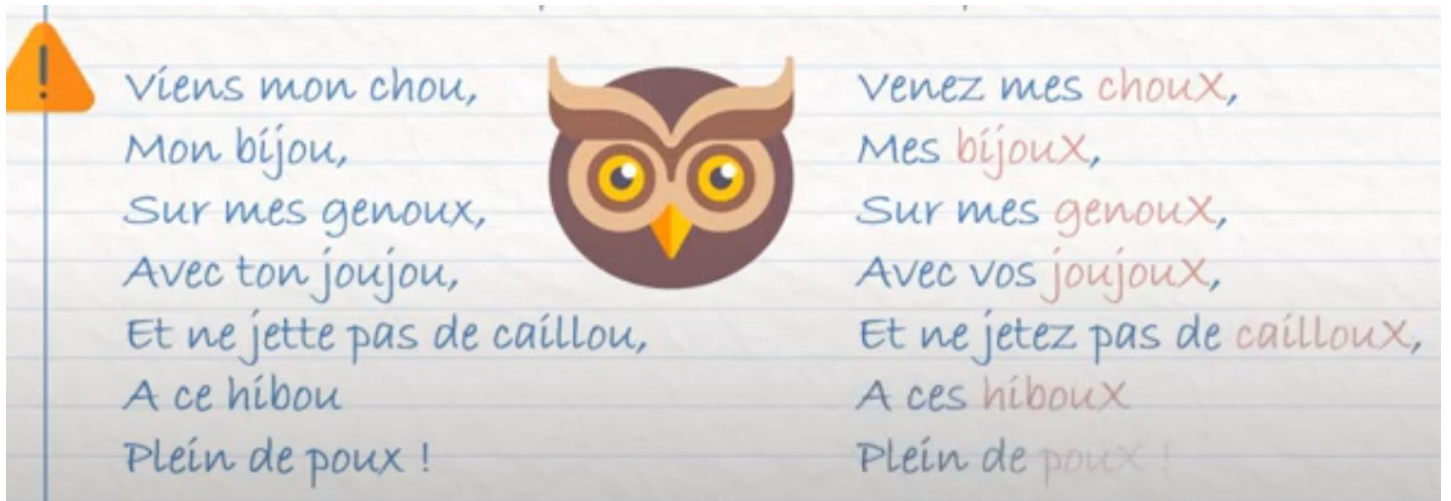 Viens mon chou,
Mon bijou,
Sur mes genoux,
Avec ton joujou,
Et ne jette pas de caillou,
A ce hibou
Plein de poux !
Venez mes chouX,
Mes bijouX,
Sur mes genouX,
Avec vos joujouX,
Et ne jetez pas de caillouX,
A ces hibouX
Plein de pouX !